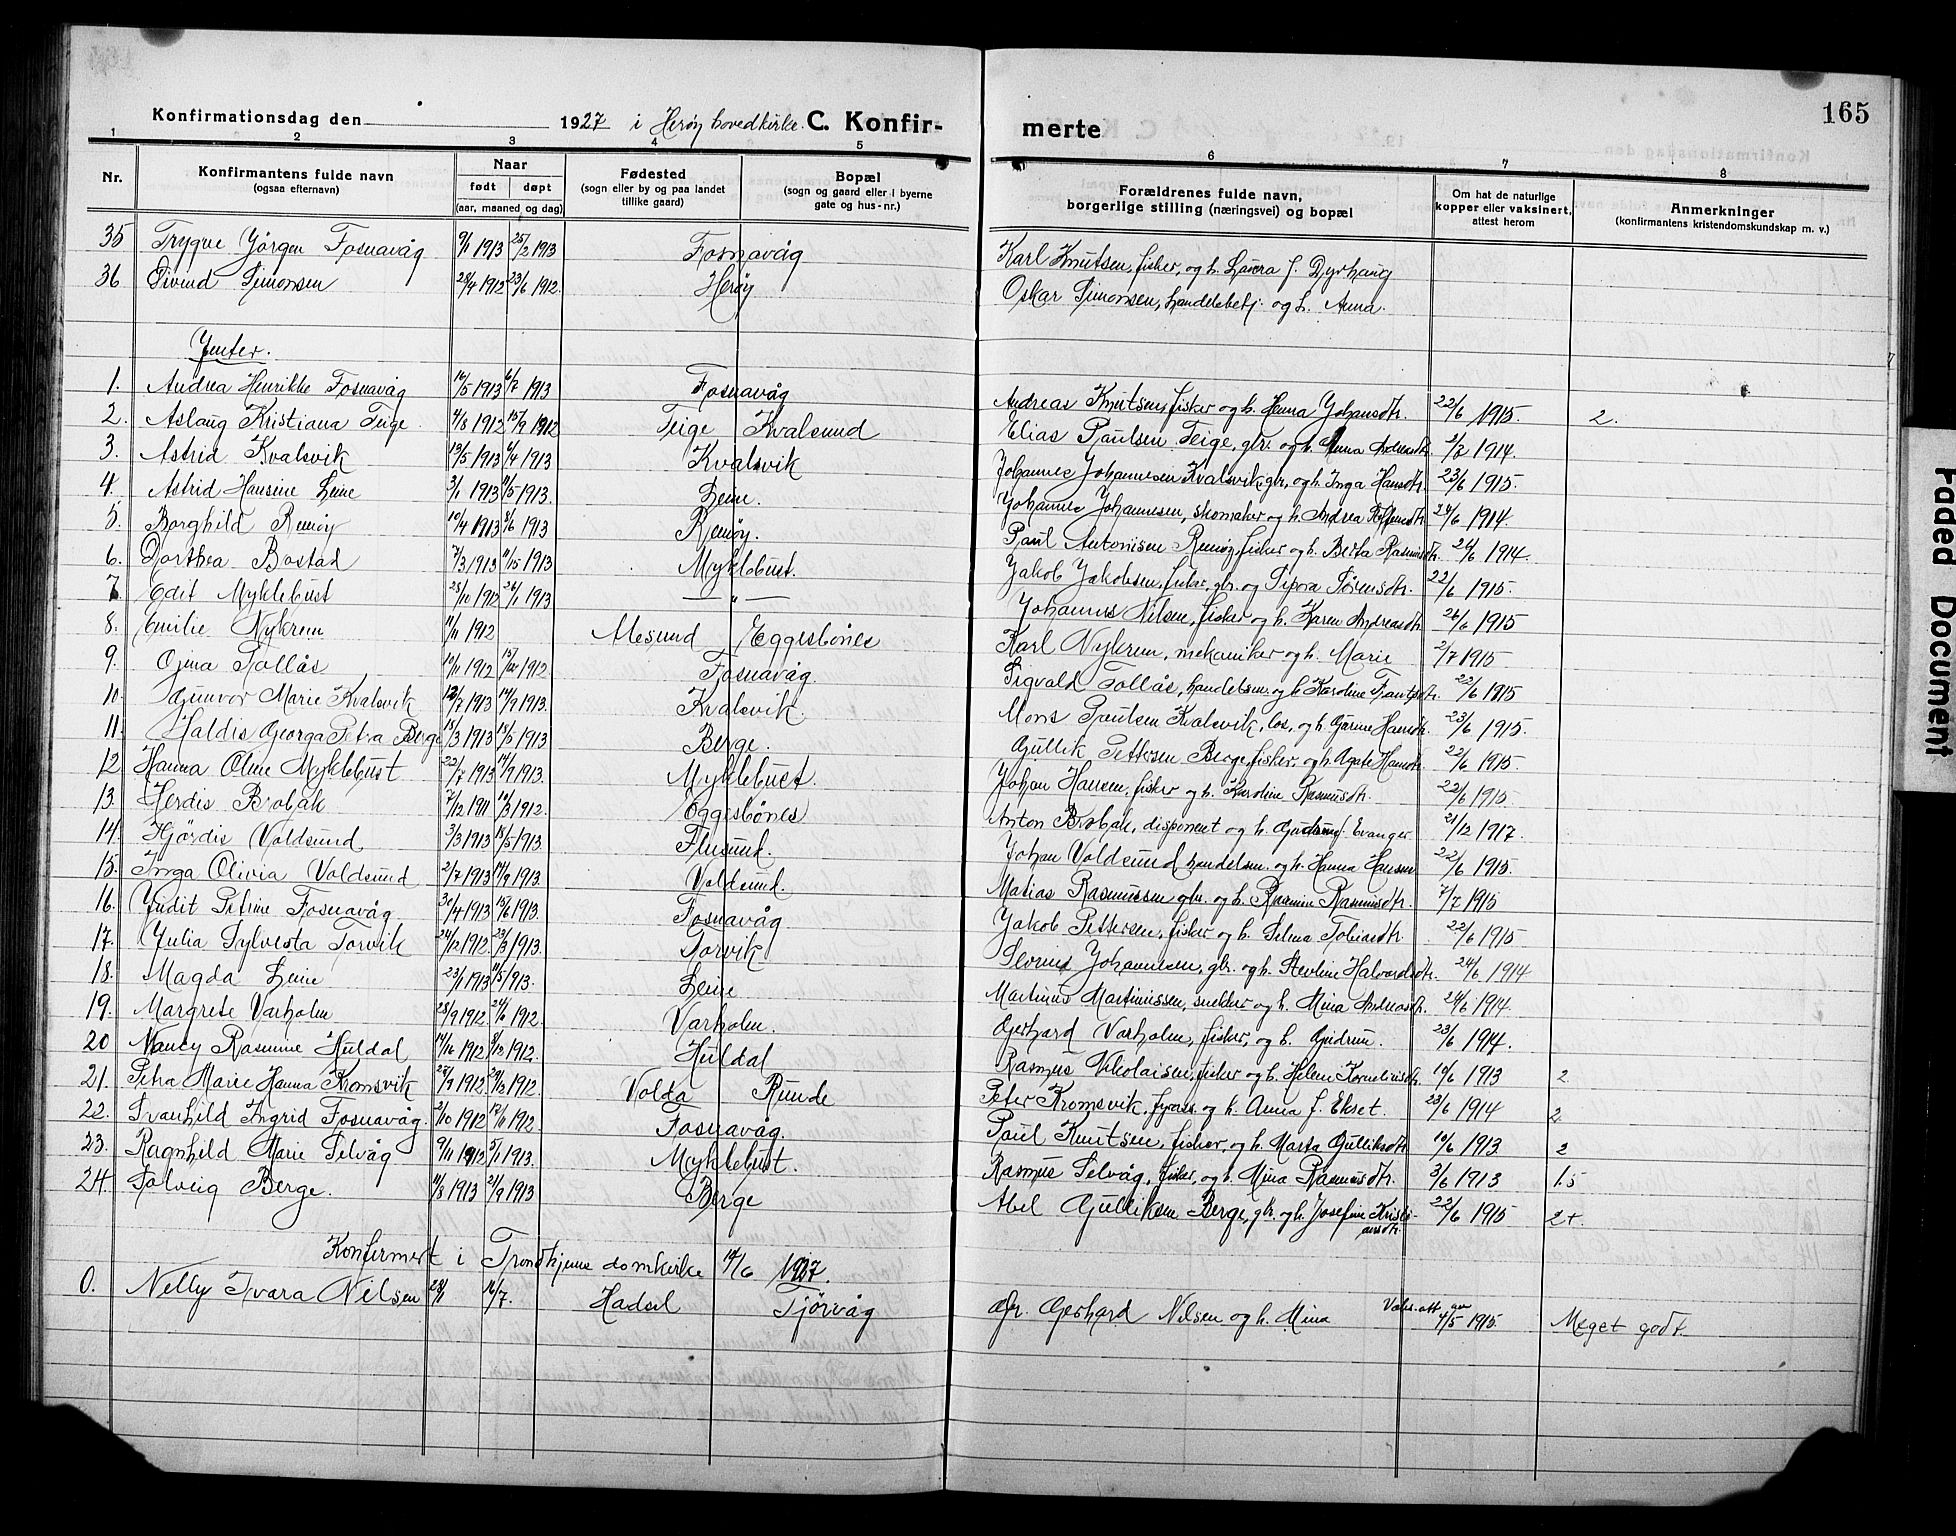 165
Konfirmationsdag den 1927 i Herøy hovedkirke. C. Konfirmerte
1 2 3 4 5 6 7 8
Nr. Konfirmantens fulde navn (ogsaa efternavn) Naar født døpt (aar, maaned og dag) Fødested (sogn eller by og paa landet tillike gaard) Bopæl (sogn og gaard eller i byerne gate og hus-nr.) Forældrenes fulde navn, borgerlige stilling (næringsvei) og bopæl Om hat de naturlige kopper eller vaksinert, attest herom Anmerkninger (konfirmantens kristendomskundskap m. v.)
35 Trygve Jörgen Fosnavåg 9/1 1913 25/2 1913 Fosnavåg Karl Knutsen, fisker, og h. Laura f. Dyrhaug
36 Eivind Simonsen 28/4 1912 23/6 1912. Herøy Oskar Simonsen, handelsbetj. og h. Anna.
Jenter.
1. Andrea Henrikke Fosnavåg 16/5 1913 6/7 1913 Fosnavåg Andreas Knutsen fisker og h. Hanna Johansdtr. 22/6 1915. 2.
2. Aslaug Kristiana Teige 4/8 1912 15/9 1912 Teige Kvalsund Elias Paulsen Teige, gbr. og h. Anna Andreasdtr. 2/2 1914.
3. Astrid Kvalsvik 13/5 1913 6/4 1913 Kvalsvik Johannes Johannesen Kvalsvik, gbr, og h. Inga Hansdtr. 23/6 1915.
4. Astrid Hansine Leine 3/1 1913 11/5 1913. Leine. Johannes Johannesen, skomaker og h. Andrea 24/6 1914.
5. Borghild Remöy 10/4 1913 8/6 1913 Remöy. Paul Antonisen Remöy, fisker og h. Berta Rasmusdtr. 24/6 1914.
6. Dorthea Bostad 7/3 1913 11/5 1913 Myklebust. Jakob Jakobsen, fisker, gbr. og Petra Sörensdtr. 22/6 1915.
7. Edit Myklebust 25/10 1912 26/1 1913 — " — Johannes Nilsen, fisker og h. Karen Andreasdtr. 26/6 1915
8. Emilie Nykrem 11/11 1912 Ålesund Eggesbönes Karl Nykrem, mekaniker og h. Marie 2/7 1915
9. Gina Tollås 10/11 1912 15/12 1912. Fosnavåg. Sigvald Tollås, handelsm. og h. Karoline Frantsdtr. 22/6 1915
10. Gunvor Marie Kvalsvik 12/7 1913 14/9 1913. Kvalsvik. Mons Paulsen Kvalsvik, los, og h. Gurine Hansdtr. 23/6 1915.
11. Haldis Georga Petra Berge 18/3 1913 18/5 1913 Berge. Gullik Pettersen Berge, fisker, og h. Agate Hansdtr. 22/6 1915.
12 Hanna Oline Myklebust 22/7 1913 14/9 1913. Myklebust. Johan Hansen, fisker og h. Karoline Rasmusdtr. 22/6 1915
13. Herdis Brobak 7/12 1911 10/3 1912. Eggesbönes Anton Brobak, disponent og h. Gudrun f. Evanger 21/12 1917.
14. Hjördis Voldsund 3/3 1913 18/5 1913. Flusund. Johan Voldsund handelsm. og h. Hanna Hansen 22/6 1915.
15. Inga Olivia Voldsund 2/7 1913 14/9 1913. Voldsund. Matias Rasmussen gbr. og h. Rasmine Rasmusdtr. 7/7 1915
16. Judit Petrine Fosnavåg 30/4 1913 15/6 1913. Fosnavåg Jakob Pettersen, fisker og h. Selma Tobiasdtr. 22/6 1915
17. Julia Sylvesta Torvik 24/12 1912. 23/3 1913. Torvik Severin Johannesen, gbr. og h. Halvardsdtr. 24/6 1914
18. Magda Leine 23/1 1913 11/5 1913. Leine Martinus Martinussen, snekker og h. Mina Andreasdtr. 24/6 1914.
19. Margrete Varholm 28/9 1912. 24/6 1912. Varholm. Gerhard Varholm, fisker, og h. Gudrun. 23/6 1914.
20 Nancy Rasmine Huldal 14/10 1912 8/12 1912. Huldal Rasmus Nikolaisen, fisker og h. Helene Korneliusdtr. 10/6 1913 2
21. Petra Marie Hanna Kromsvik 28/9 1912 29/12 1912. Volda Runde Peter Kromsvik, fyrass. og h. Anna f. Ekset. 23/6 1914 2
22. Svanhild Ingrid Fosnavåg. 2/10 1912 17/11 1912. Fosnavåg. Paul Knutsen, fisker, og h. Marta Gulliksdtr. 10/6 1913 2
23. Ragnhild Marie Selvåg 9/11 1912 5/1 1913. Myklebust. Rasmus Selvåg, fisker, og h. Mina Rasmusdtr. 3/6 1913 1.5
24. Solveig Berge. 11/8 1913 21/9 1913 Berge Abel Gulliksen Berge, gbr. og h. Josefine Kristiansdtr. 22/6 1915 2+.
Konfirmert i Trondhjems domkirke 19/6 1927.
0. Nelly Svara Nilsen 28/1 16/7. Hadsel Tjörvåg Gr. Gerhard Nilsen og h. Mina Vaks. att. av 4/5 1915. Meget godt.
Faded Document